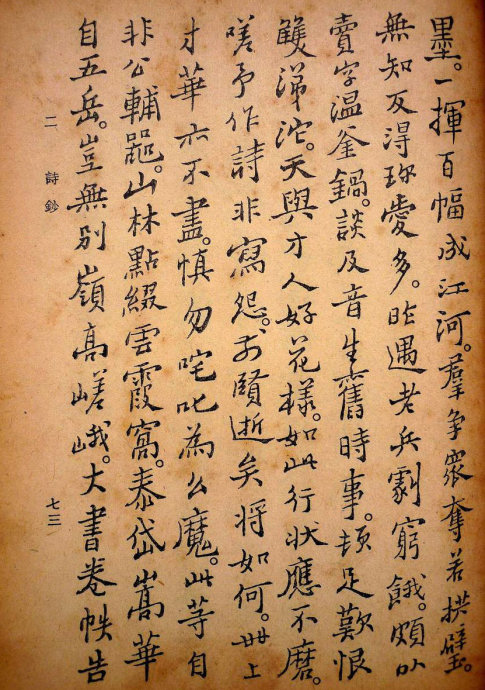 墨。一揮百幅成江河。羣爭眾奪若拱璧。
無知反得珍愛多。昨遇老兵劇窮餓。頗以
賣字溫釜鍋。談及音生舊時事。頓足歎恨
雙涕沱。天與才人好花樣。如此行狀應不磨。
嗟予作詩非寫怨。前賢逝矣將如何。世上
才華亦不盡。慎勿咤叱為公魔。此等自
非公輔器。山林點綴雲霞窩。泰岱嵩華
自五岳。豈無別嶺高嵯峨。大書卷帙告
二 詩鈔 七三